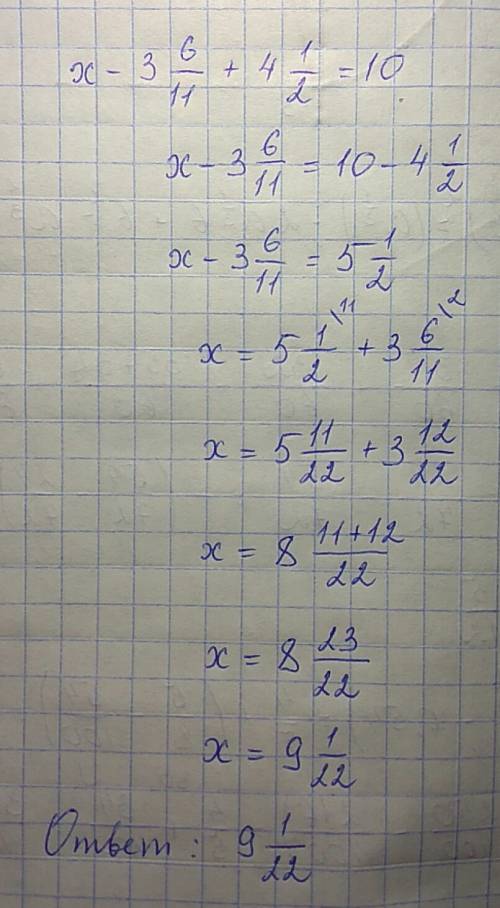 x - 3 6/11 + 4 1/2 = 10
x - 3 6/11 = 10 - 4 1/2
x - 3 6/11 = 5 1/2
x = 5 1/2 \11 + 3 6/11 \2
x = 5 11/22 + 3 12/22
x = 8 11+12/22
x = 8 23/22
x = 9 1/22
Ответ: 9 1/22